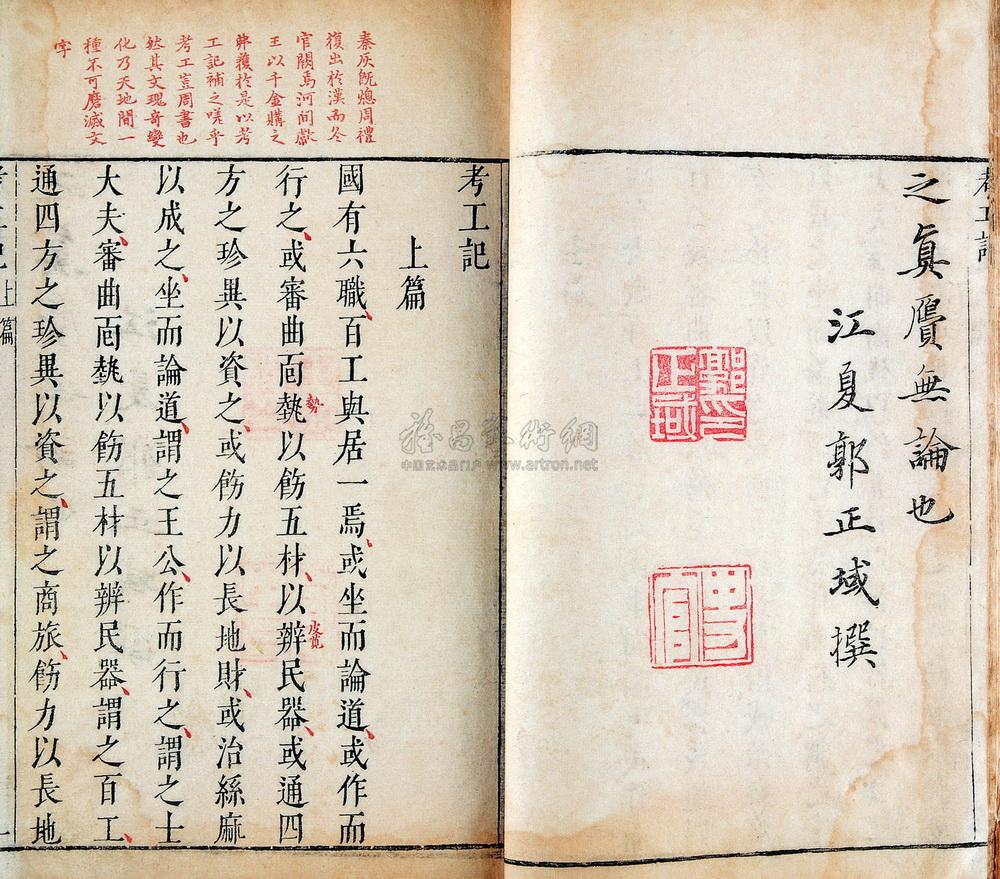 之眞贗無論也
江夏郭正域撰
考工記
秦灰旣熄周禮
復出於漢而冬
官闕焉河間獻
王以千金購之
弗獲於是以考
工記補之嗟乎
考工豈周書也
然其文瑰奇變
化乃天地間一
種不可磨滅文
字
考工記
上篇
國有六職百工與居一焉或坐而論道或作而
行之或審曲面埶以飭五材以辨民器或通四
埶
皮莧
方之珍異以資之或飭力以長地財或治絲麻
以成之坐而論道謂之王公作而行之謂之士
大夫審曲面埶以飭五材以辨民器謂之百工
通四方之珍異以資之謂之商旅飭力以長地
考工記上篇
一
中国艺术品门户 www.artron.net